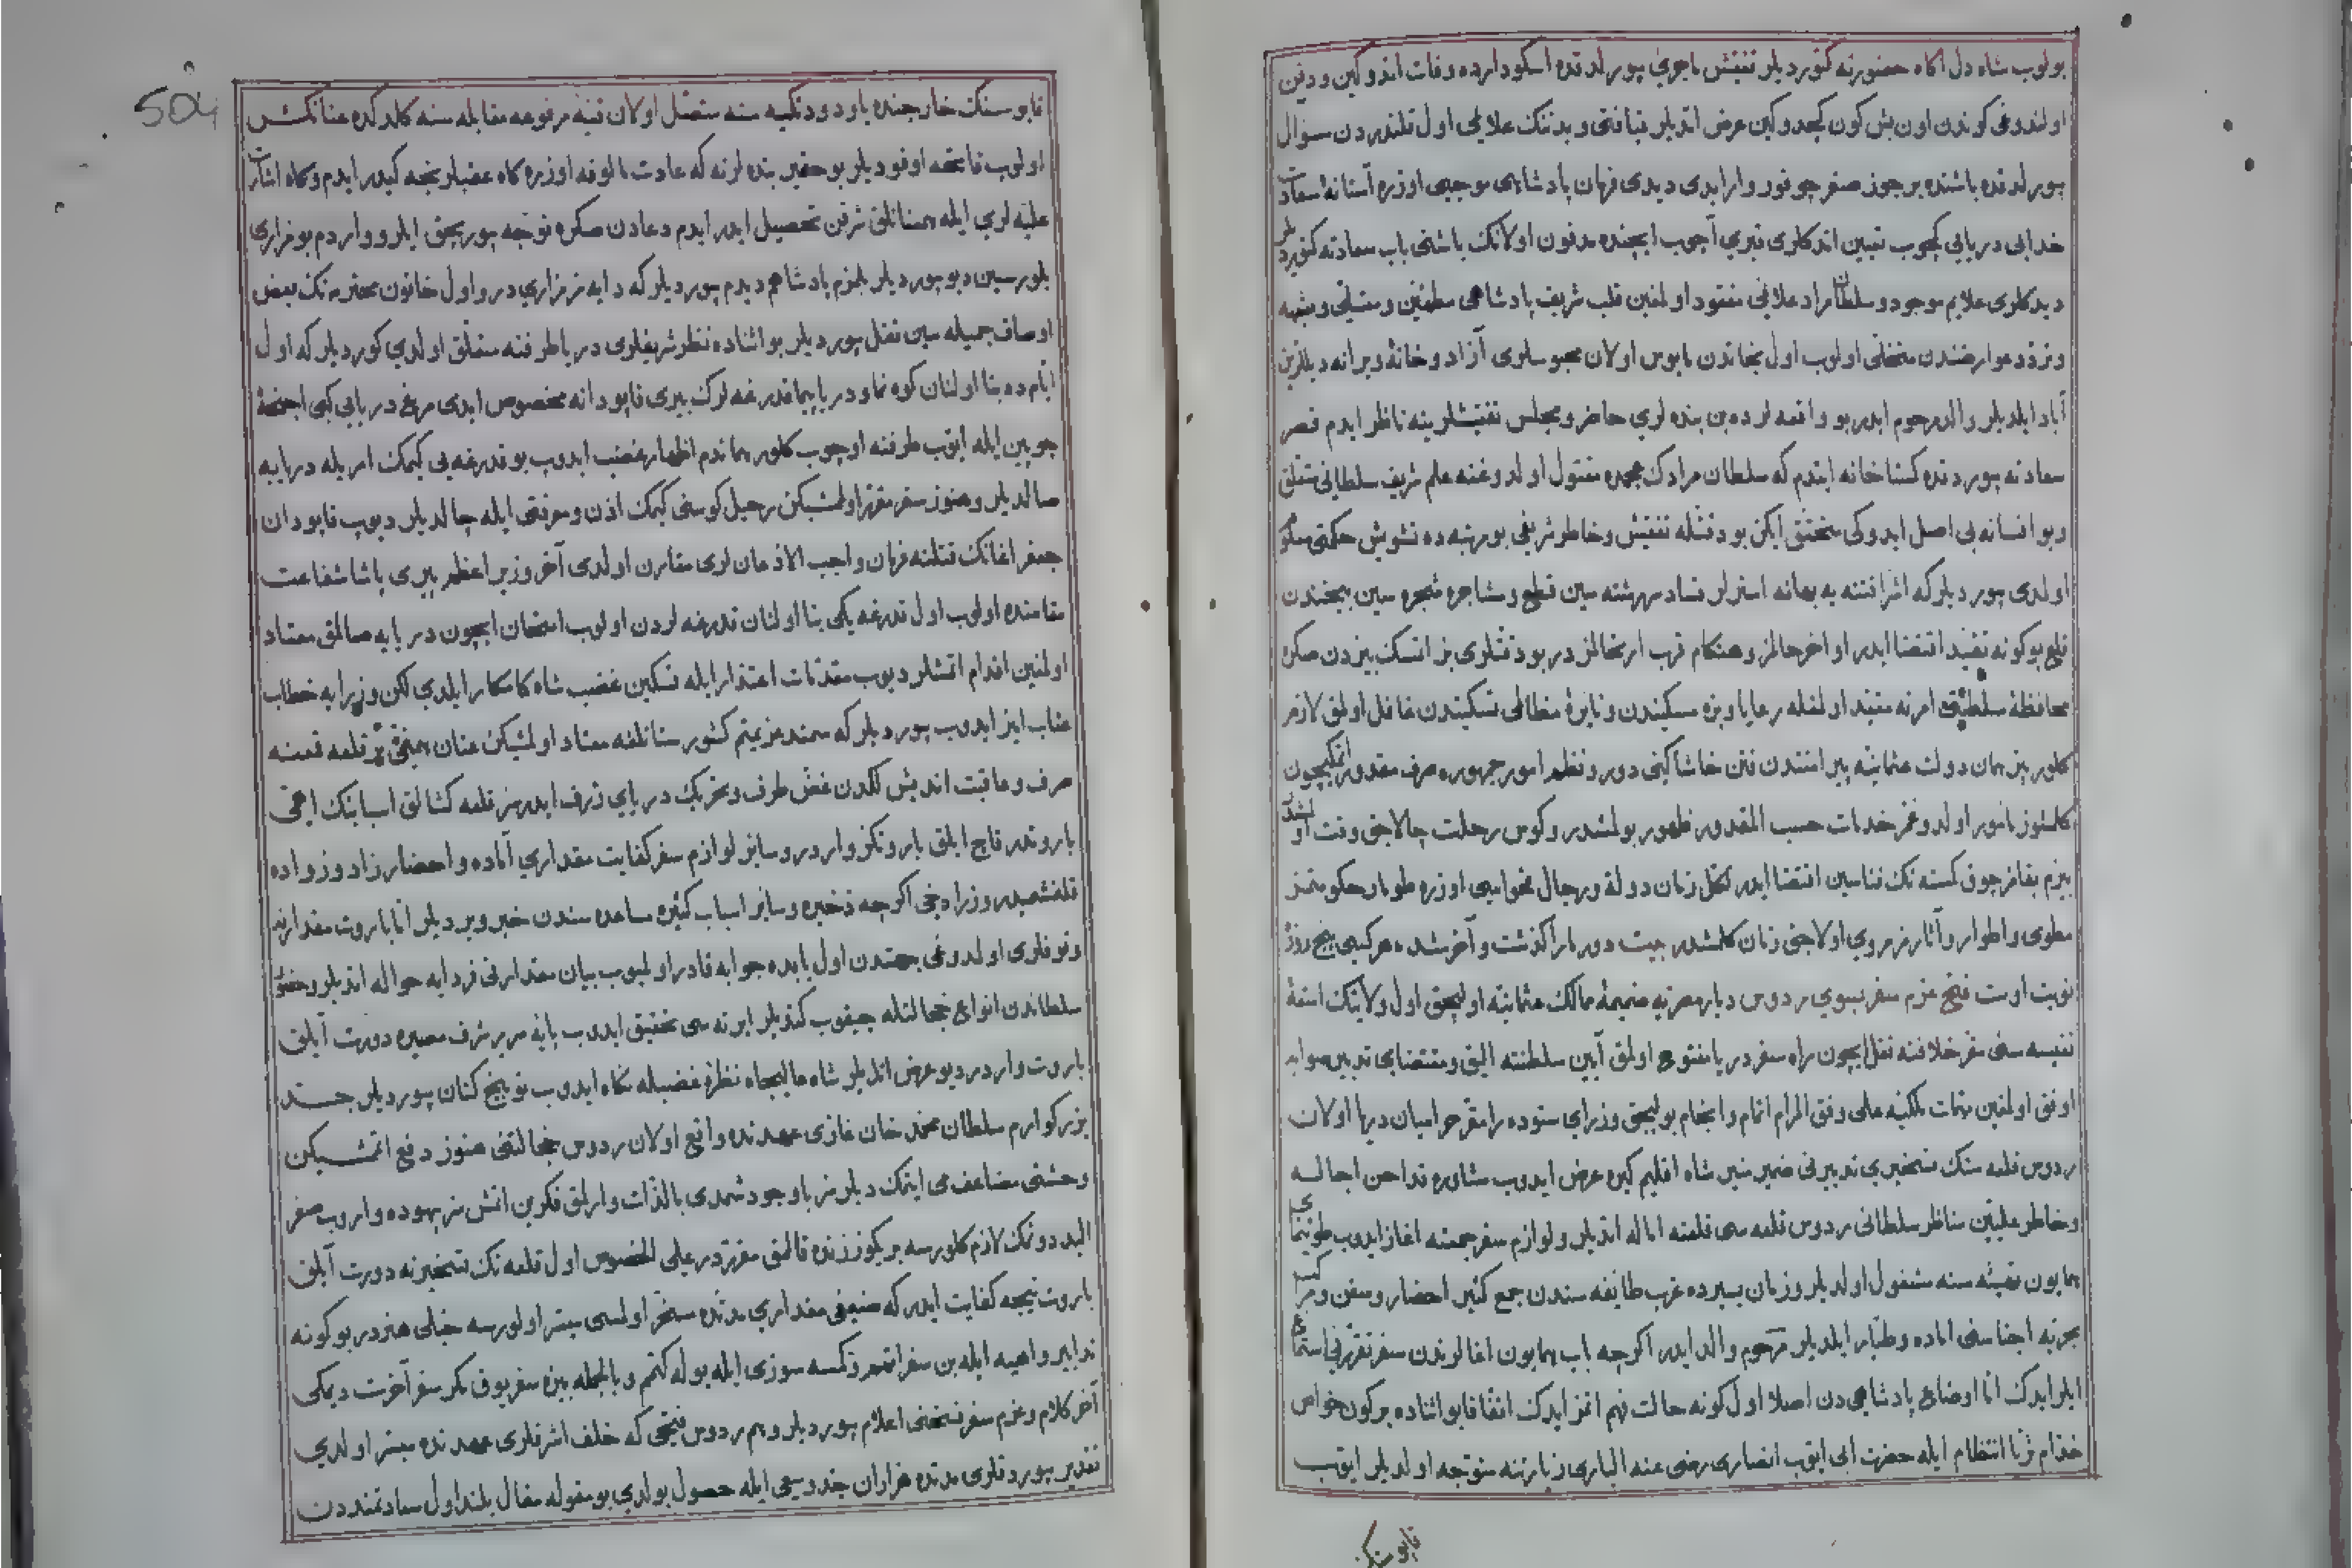 بولوب شاه دل آكاه حضورنه كتوردیلر تفتیش ماجرای بیورلدقده اسكودارده وفات ایدوكین ودفن
اولندوغی كوندن اون بش كون كچدوكین عرض ایتدیلر قیافتی وبدننك علایمی اول قلندردن سؤال
بیورلدقده باشنده بر جوز صغر چوقور وار ایدی دیدی فرمان پادشاهی موجبی اوزره آستانه سعادت
خدامی دریایی كچوب تعیین ایتدكلری قبری آچوب ایچنده مدفون اولانك باشنی باب سعادته كتوردیلر
دیدكلری علایم موجود وسلطان مراد علایمی مفقود اولمغین قلب شریف پادشاهی مطمئن ومتسلی وشبهه
وتردد عوارضندن متخلی اولوب اول نجاتدن مأیوس اولان محبوسلری آزاد وخانه ویرانه دیللرین
آباد ایلدیلر والد مرحوم ایدر بو واقعه لرده بن بنده لری حاضر ومجلس تفتیشلرینه ناظر ایدم قصر
سعادته بیوردقده كستاخانه ایتدم كه سلطان مرادك عجمده مقتول اولدوغنه علم شریف سلطانی متعلق
وبو افسانه بی اصل ایدوكی متحقق ایكن بو دقتله تفتیش وخاطر شریفی بو رتبه ده تشویش حكمتی نه
اولدی بیوردیلر كه اشرا فتنه یه بهانه استرلر فساد سررشته سین قطع ومشاجره شجره سین بیخندن
قلع بو كونه تقید اقتضا ایدر اواخر حالمز وهنكام قرب ارتحالمز در بو دقتلری بز ایتسك بیزدن صكره
محافظه سلطنت امرنه مقید اولمغله رعایا ویزه سیكیندن ونایره مظالمی تسكیندن غافل اولمق لازم
كلور بیز همان دولت عثمانیه پیرامنندن فتن خاشاكینی دور ونظم امور جمهوره صرف مقدور ایتمكیچون
كلمشوز مأمور اولدوغمز خدمات حسب المقدور ظهور بولمشدر وكوس رحلت چالاجق وقت اولمشدر
بیزم بقامز چوق كسنه نك فناسین اقتضا ایدر لكل زمان دولة ورجال فحواسی اوزره طومار حكومتمز
مطوی واطوار وآثارمز مروی اولاجق زمان كلمشدر بیت دور ما را كذشت وآخر شد * هر كسی پنج روزه
نوبت اوست فتح عزم سفر بسوی ردوس دیار مصریه ضمیمه ممالك عثمانیه اولیجق اول ولایتك امتعه
نفیسه سنی مقر خلافته نقل ایچون راه سفر دریا مفتوح اولمق آیین سلطنته الیق ومقتضای تدبیر صوابه
اوفق اولمغین مهمات ملكیه علی وفق المرام اتمام وانجام بولیجق وزرای ستوده را مقر حرامیان دریا اولان
ردوس قلعه سنك تسخیری تدبیرنی ضمیر منیر شاه اقلیم كیره عرض ایدوب مشاوره قداحن اجاله
وخاطر ملیین مناظر سلطانی ردوس قلعه سی قلعنه اماله ایتدیلر ولوازم سفر جمعنه آغاز ایدوب طوننمای
همایون تهیئه سنه مشغول اولدیلر وزمان یسیرده عرب طایفه سندن جمع كثیر احضار وسفن ومراكب
بحریه اجناسنی اماده وطیار ایلدیلر مرحوم والد ایدر اكرچه باب همایون اغالرندن سفر تقررینی استماع
ایلر ایدك اما اوضاع پادشاهیدن اصلا اول كونه حالت فهم اتمز ایدك اتفاقا بو اثناده بر كون خواص
خدام ثریا انتظام ایله حضرت ابی ایوب انصاری رضی عنه الباری زیارتنه متوجه اولدیلر ایوب
قاپوسنك
قاپوسنك خارجنده یاودود تكیه سنه متصل اولان قبه مرفوعه مقابله سنه كلدكده عنانكش
اولوب فاتحه اوقودیلر بو حقیر بنده لرنه كه عادت مألوفه اوزره كاه عقبلرنجه كیدر ایدم وكاه اشارت
علیه لری ایله همعنانلق شرفن تحصیل ایدر ایدم دعادن صكره توجه بیوریجق ایلرو واردم بو مزاری
بلورسین دیو بیوردیلر بلمزم پادشاهم دیدم بیوردیلر كه دایه مز مزاری در واول خاتون محترمه نك بعض
اوصاف جمیله سین نقل بیوردیلر بو اثناده نظر شریفلری دریا طرفنه متعلق اولدی كوردیلر كه اول
ایام ده بنا اولنان كوه نما ودریا پیما قدرغه لرك بیری قاپودانه مخصوص ایدی مرغ دریایی كبی اجنحه
چوبین ایله ایوب طرفنه اوچوب كلور هماندم اظهار غضب ایدوب بو قدرغه یی كیمك امریله دریایه
صالدیلر وهنوز سفر مقرر اولمشیكن رحیل كوسنی كیمك اذن ومعرفتی ایله چالدیلر دیوب قاپودان
جعفر اغانك قتلنه فرمان واجب الاذعانلری مقارن اولدی آخر وزیر اعظم پیری پاشا شفاعت
مقامنده اولوب اول قدرغه یكی بنا اولنان قدرغه لردن اولوب امتحان ایچون دریایه صالمق معتاد
اولمغین اقدام اتمشلر دیوب مقدمات اعتذار ایله تسكین غضب شاه كامكار ایلدی لكن وزرایه خطاب
عتاب امیز ایدوب بیوردیلر كه سمند عزیمتم كشور ستانلغه معتاد اولمشیكن عنان همتی بر قلعه فتحنه
صرف وعاقبت اندیش لكدن غض طرف وتحریك دریای ژرف ایدرسز قلعه كشالق اسبابنك اهمی
باروتدر قاچ ایلق باروتكز واردر وسایر لوازم سفر كفایت مقداری آماده واحضار زاد وزواده
قلنمشمیدر وزرا دخی اكرچه ذخیره وسایر اسباب كثیره مساعده سندن خبر ویردیلر اما باروت مقدارینه
وقوفلری اولدوغی جهتدن اول بابده جوابه قادر اولمیوب بیان مقدارنی فردایه حواله ایتدیلر وحضور
سلطاندن انواع خجالتله چیقوب كتدیلر ایرته سی تحقیق ایدوب پایه سریر شرف مصیره دورت آیلق
باروت واردر دیو عرض ایتدیلر شاه عالیجاه نظره غضبله نكاه ایدوب توبیخ كنان بیوردیلر جد
بزركوارم سلطان محمد خان غازی عهدنده واقع اولان ردوس خجالتنی هنوز دفع اتمشیكن
وحشتی مضاعف می ایتمك دیلرسز باوجود شمدی بالذات وارمق فكرین اتمش سز بیهوده واروب صفر
الید دونمك لازم كلورسه بریكوز زنده قالمق مقرردر علی الخصوص اول قلعه نك تسخیرنه دورت آیلق
باروت نیجه كفایت ایدر كه ضعفی مقداری مدتده مسخر اولمسی میسر اولورسه خیلی هنردر بو كونه
تدابیر واهیه ایله بن سفر اتمم وكمسه سوزی ایله یوله كتمم وبالجمله بیزه سفر یوق مكر سفر آخرت دیمكی
آخر كلام وعزم سفر فسخنی اعلام بیوردیلر وهم ردوس فتحی كه خلف اشرفلری عهدنده میسر اولدی
تقدیر بیوردقلری مدتده هزاران جد وسعی ایله حصول بولدی بو مقوله مقال بلند اول سعادتمنددن
504